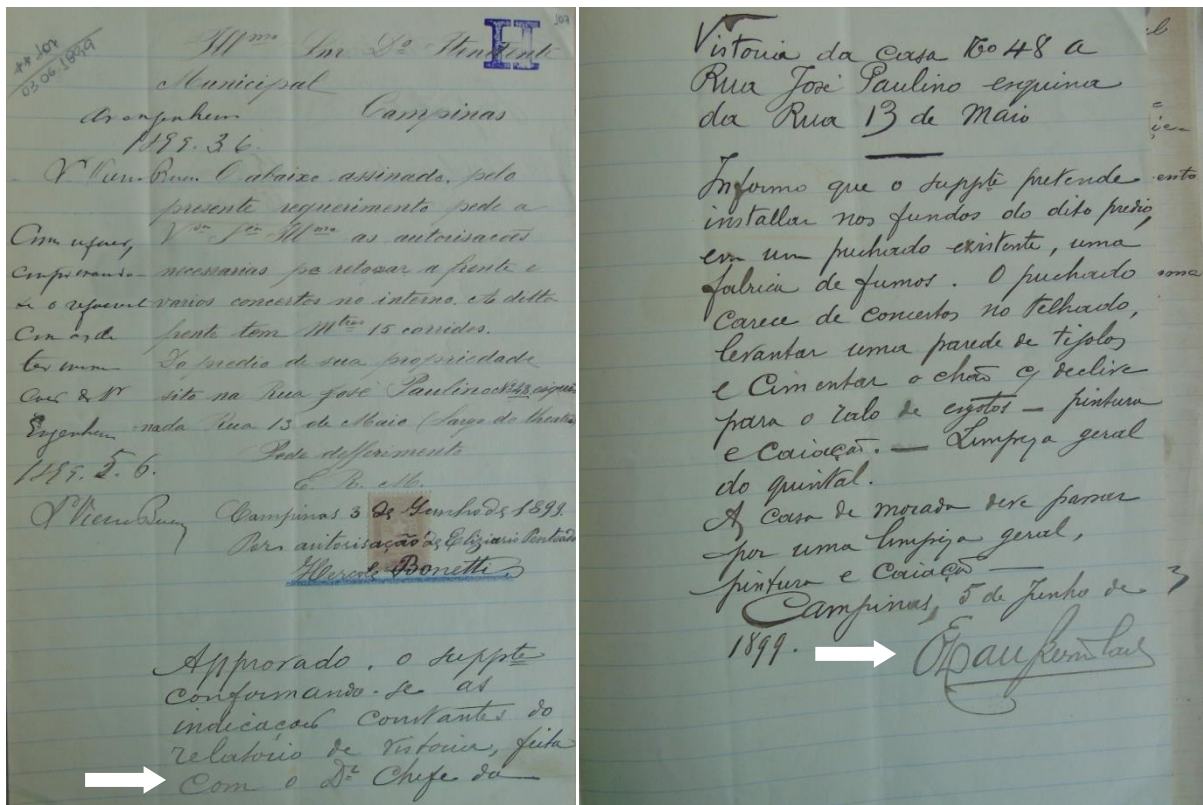 107
** 107
03.06.1899
Illmo Snr Do Itendente
Municipal
Campinas
Ao engenheiro
1899.3.6.
O abaixo assinado, pelo
presente requerimento pede a
Vsa Sria Illma as autorisações
necessarias pa retocar a frente e
varios concertos no interno. A ditta
frente tem Mtros 15 corridos.
Do predio de sua propriedade
sito na Rua José Paulino No 48, esqui
nada Rua 13 de Maio (Largo do theatro
Pede defferimento
E. R. M.
Campinas 3 de Gunho de 1899
Por autorisação de Eliziario Penteado
Hercole Bonetti
Como requer,
comprovando
se o
Com os de
Engenheiro
1899. 5. 6.
Approvado, o suppte
conformando-se as
indicações constantes do
relatorio de vistoria, feita
Com o Dr Chefe da
Vistoria da casa No 48 a
Rua José Paulino esquina
da Rua 13 de Maio
Informo que o suppte pretende
installar nos fundos do dito predio,
em um puchado existente, uma
fabrica de fumos. O puchado
carece de concertos no telhado,
levantar uma parede de tijolos
e Cimentar o chão c/ declive
para o ralo de esgotos — pintura
e Caiação. — Limpeza geral
do quintal.
A casa de morada deve passar
por uma limpeza geral,
pintura e Caiação —
Campinas, 5 de Junho de
1899.
ento
uma